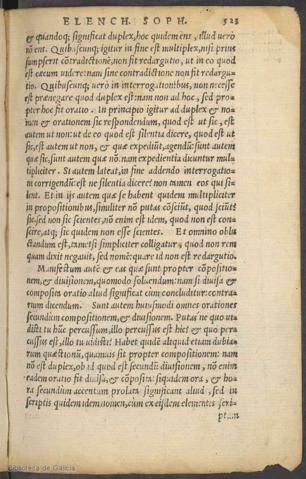 ELENCH. SOPH. 523
& quandoq; significat duplex, hoc quidem ens, illud verò
nō ent. Quibuscunq; igitur in fine est multiplex, nisi prius
sumpserit cōtradictionē, non fit redargutio, ut in eo quod
est cæcum videre: nam sine contradictione non fit redargu-
tio. Quibuscunq; verò in interrogationibus, non necesse
est prænegare quod duplex est: nam non ad hoc, sed pro-
pter hoc fit oratio. In principio igitur ad duplex & no-
men & orationem sic respondendum, quod est ut sic, est
autem ut non: ut de eo quod est silentia dicere, quod est ut
sic, est autem ut non, & quæ expediūt, agendū: sunt autem
quæ sic, sunt autem quæ nō. nam expedientia dicuntur mul-
tipliciter. Si autem lateat, in fine addendo interrogatio-
ni corrigendū: est ne silentia dicere? non tamen eos qui si-
lent. Et in ijs autem quæ se habent quidem multipliciter
in propositionibus, similiter nō putas cōsciūt, quod sciūt?
sic, sed non sic scientes, nō enim est idem, quod non est con-
scire, atq; sic quidem non esse scientes. Et omnino oblu-
ctandum est, tametsi simpliciter colligatur, quod non rem
quam dixit negauit, sed nomē: quare id non est redargutio.
Manifestum autē & eas quæ sunt propter cōpositio-
nem, & diuisionem, quomodo soluendum: nam si diuisa &
composita oratio aliud significat cum concluditur: contra-
rium dicendum. Sunt autem huiusmodi omnes orationes
secundum compositionem, & diuisionem. Putas ne quo ut-
disti tu hūc percussum, illo percussus est hic? & quo per-
cussus est, illo tu vidisti? Habet quidē aliquid etiam dubia-
rum quæstionū, quamuis sit propter compositionem: nam
nō est duplex, ob id quod est secundū diuisionem, nō enim
eadem oratio fit diuisa, & cōposita: siquidem ora, & ho-
ra secundūm accentum prolata significant aliud, sed in
scriptis quidem idem nomen, cùm ex eisdem elementis scri-
ptum
Biblioteca de Galicia